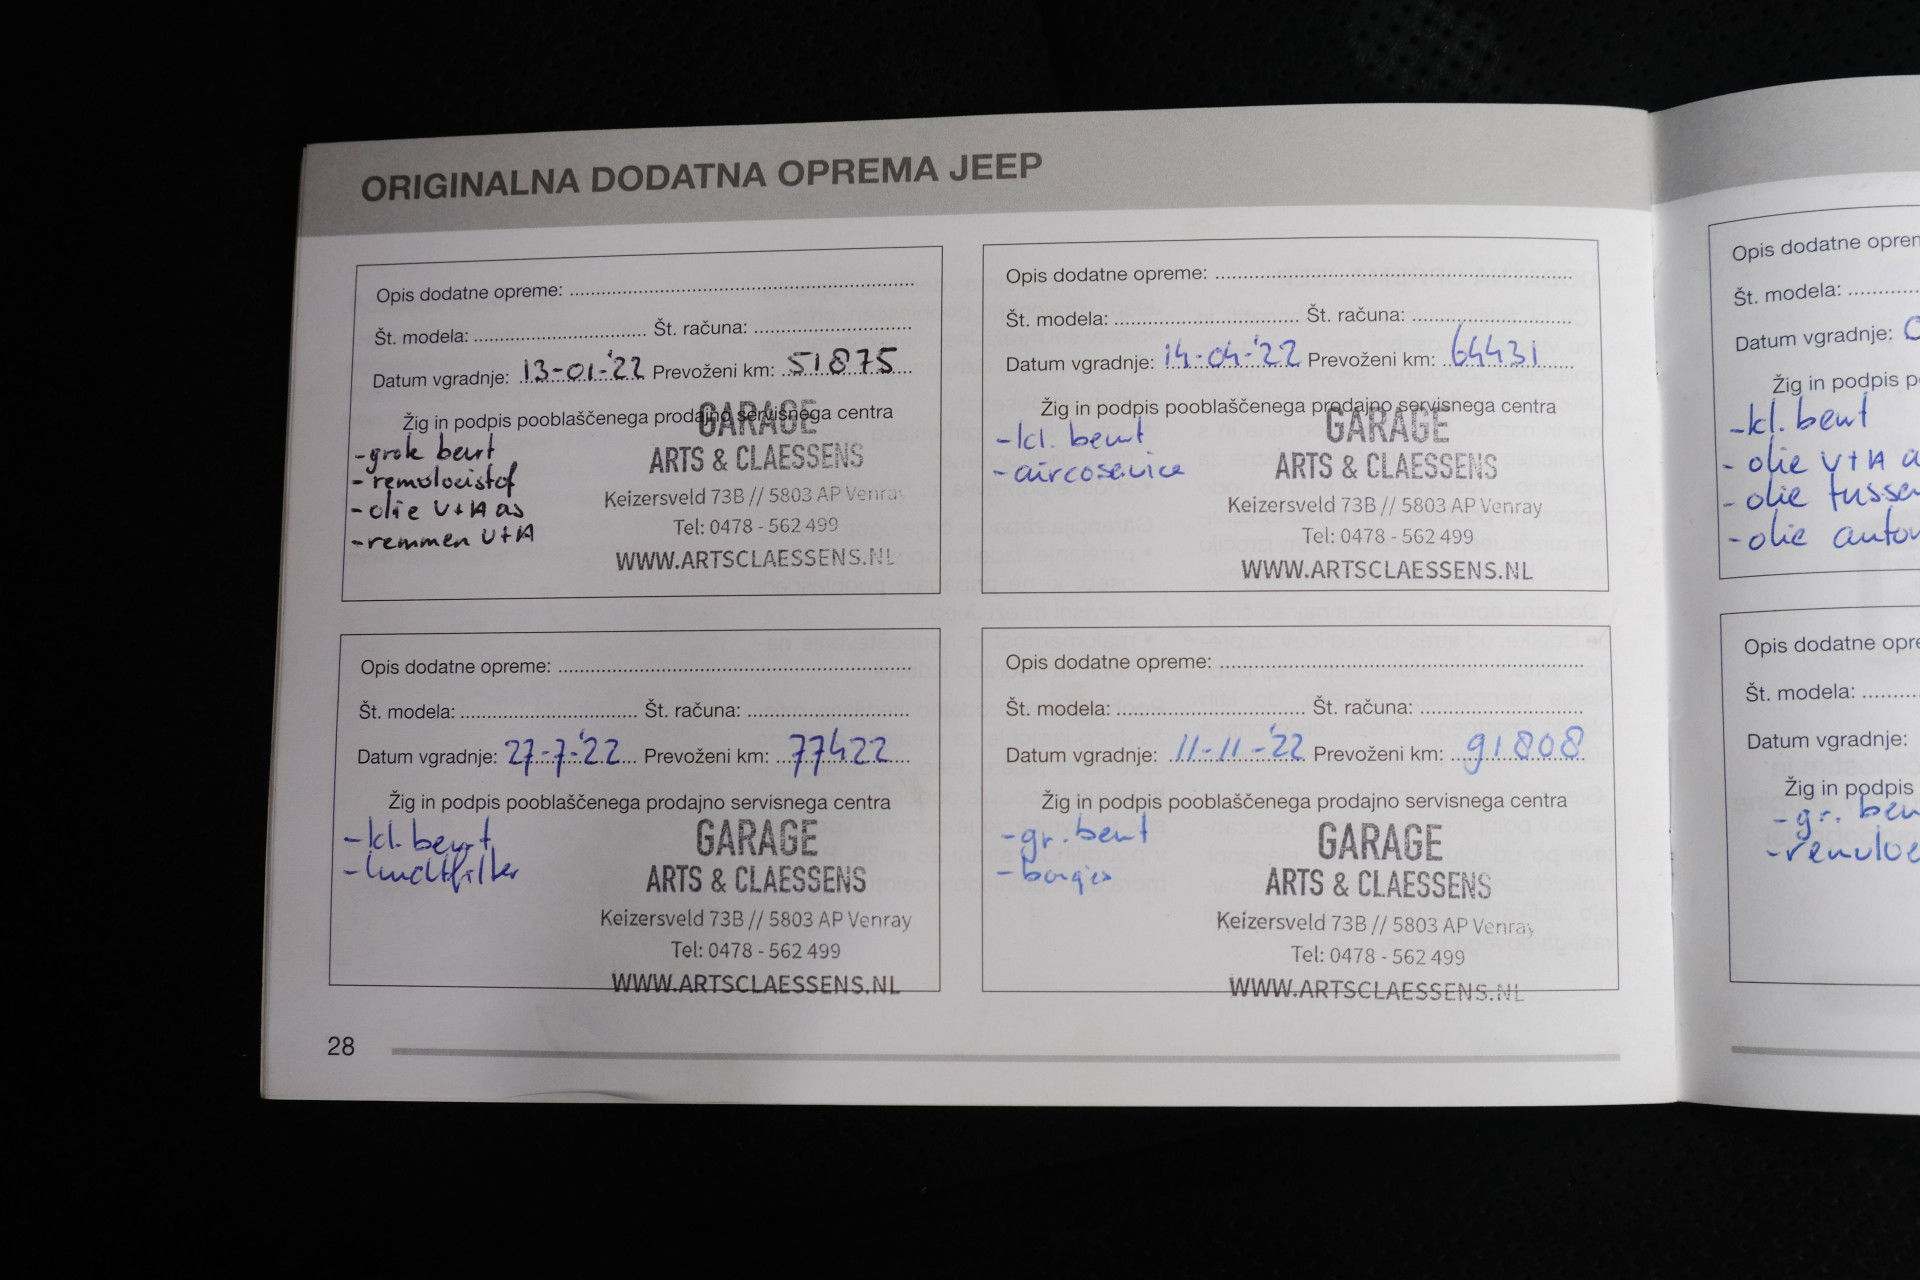 ORIGINALNA DODATNA OPREMA JEEP
Opis dodatne opreme:
Št. modela: Št. računa:
Datum vgradnje: 13-01-'22 Prevoženi km: 51875
Žig in podpis pooblaščenega prodajno servisnega centra
-grote beurt
-remvloeistof
-olie V+A as
-remmen V+A
GARAGE
ARTS & CLAESSENS
Keizersveld 73B // 5803 AP Venray
Tel: 0478 - 562 499
WWW.ARTSCLAESSENS.NL
Opis dodatne opreme:
Št. modela: Št. računa:
Datum vgradnje: 14-04-'22 Prevoženi km: 64431
Žig in podpis pooblaščenega prodajno servisnega centra
-kl. beurt
-aircoservice
GARAGE
ARTS & CLAESSENS
Keizersveld 73B // 5803 AP Venray
Tel: 0478 - 562 499
WWW.ARTSCLAESSENS.NL
Opis dodatne opreme:
Št. modela: Št. računa:
Datum vgradnje: 27-7-'22 Prevoženi km: 77422
Žig in podpis pooblaščenega prodajno servisnega centra
-kl. beurt
-luchtfilter
GARAGE
ARTS & CLAESSENS
Keizersveld 73B // 5803 AP Venray
Tel: 0478 - 562 499
WWW.ARTSCLAESSENS.NL
Opis dodatne opreme:
Št. modela: Št. računa:
Datum vgradnje: 11-11-'22 Prevoženi km: 91808
Žig in podpis pooblaščenega prodajno servisnega centra
-gr. beurt
-bougies
GARAGE
ARTS & CLAESSENS
Keizersveld 73B // 5803 AP Venray
Tel: 0478 - 562 499
WWW.ARTSCLAESSENS.NL
28
Opis dodatne oprem
Št. modela:
Datum vgradnje: 0
Žig in podpis p
-kl. beurt
-olie V+A a
-olie tussen
-olie autom
Opis dodatne opre
Št. modela:
Datum vgradnje:
Žig in podpis
-gr. beu
-remvloe